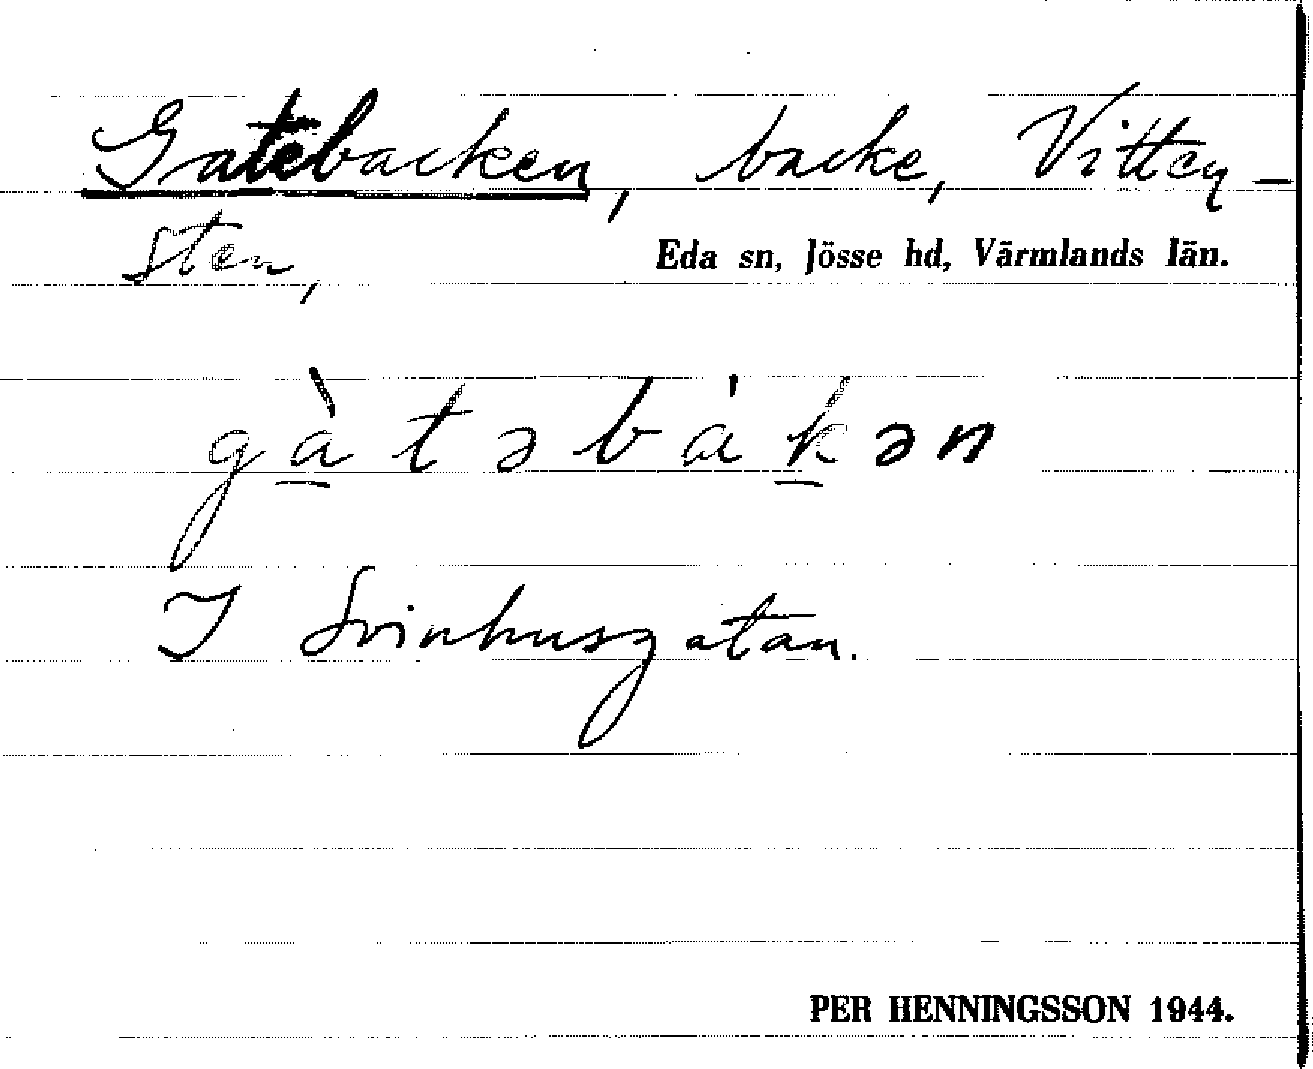 Gatebacken, backe, Vitten-
sten,
Eda sn, Jösse hd, Värmlands län.
gàtəbákən
I Svinhusgatan.
PER HENNINGSSON 1944.